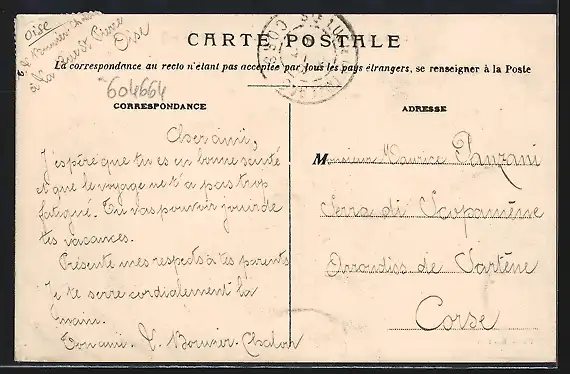 Oise
CARTE POSTALE
La correspondance au recto n'étant pas acceptée par tous les pays étrangers, se renseigner à la Poste
604664
CORRESPONDANCE
Cher ami,
J'espère que tu es en bonne santé
et que le voyage ne t'a pas trop
fatigué. Tu vas pouvoir jouir de
tes vacances.
Présente mes respects à tes parents
Je te serre cordialement la
main.
Ton ami. Bouvier-Chalon
ADRESSE
Monsieur Maurice Panzani
Serra di Scopamène
Arrondiss de Sartène
Corse